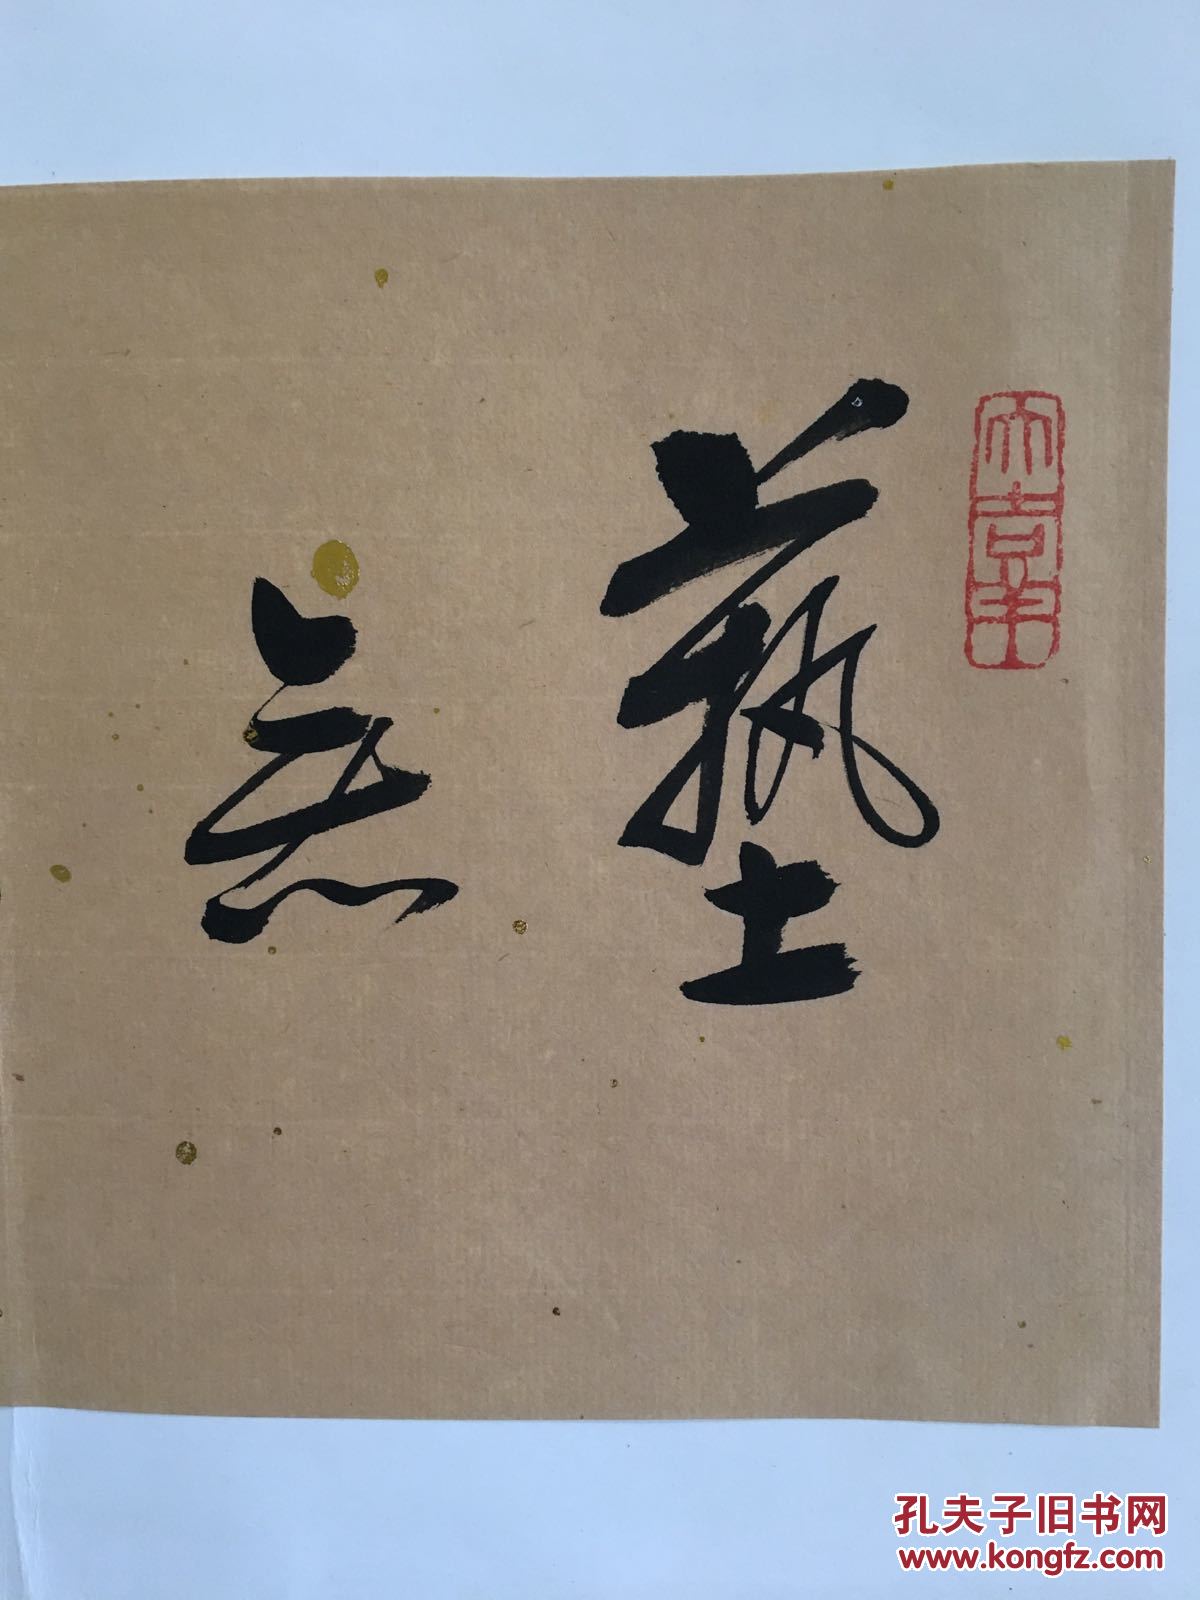 藝
無
孔夫子旧书网
www.kongfz.com